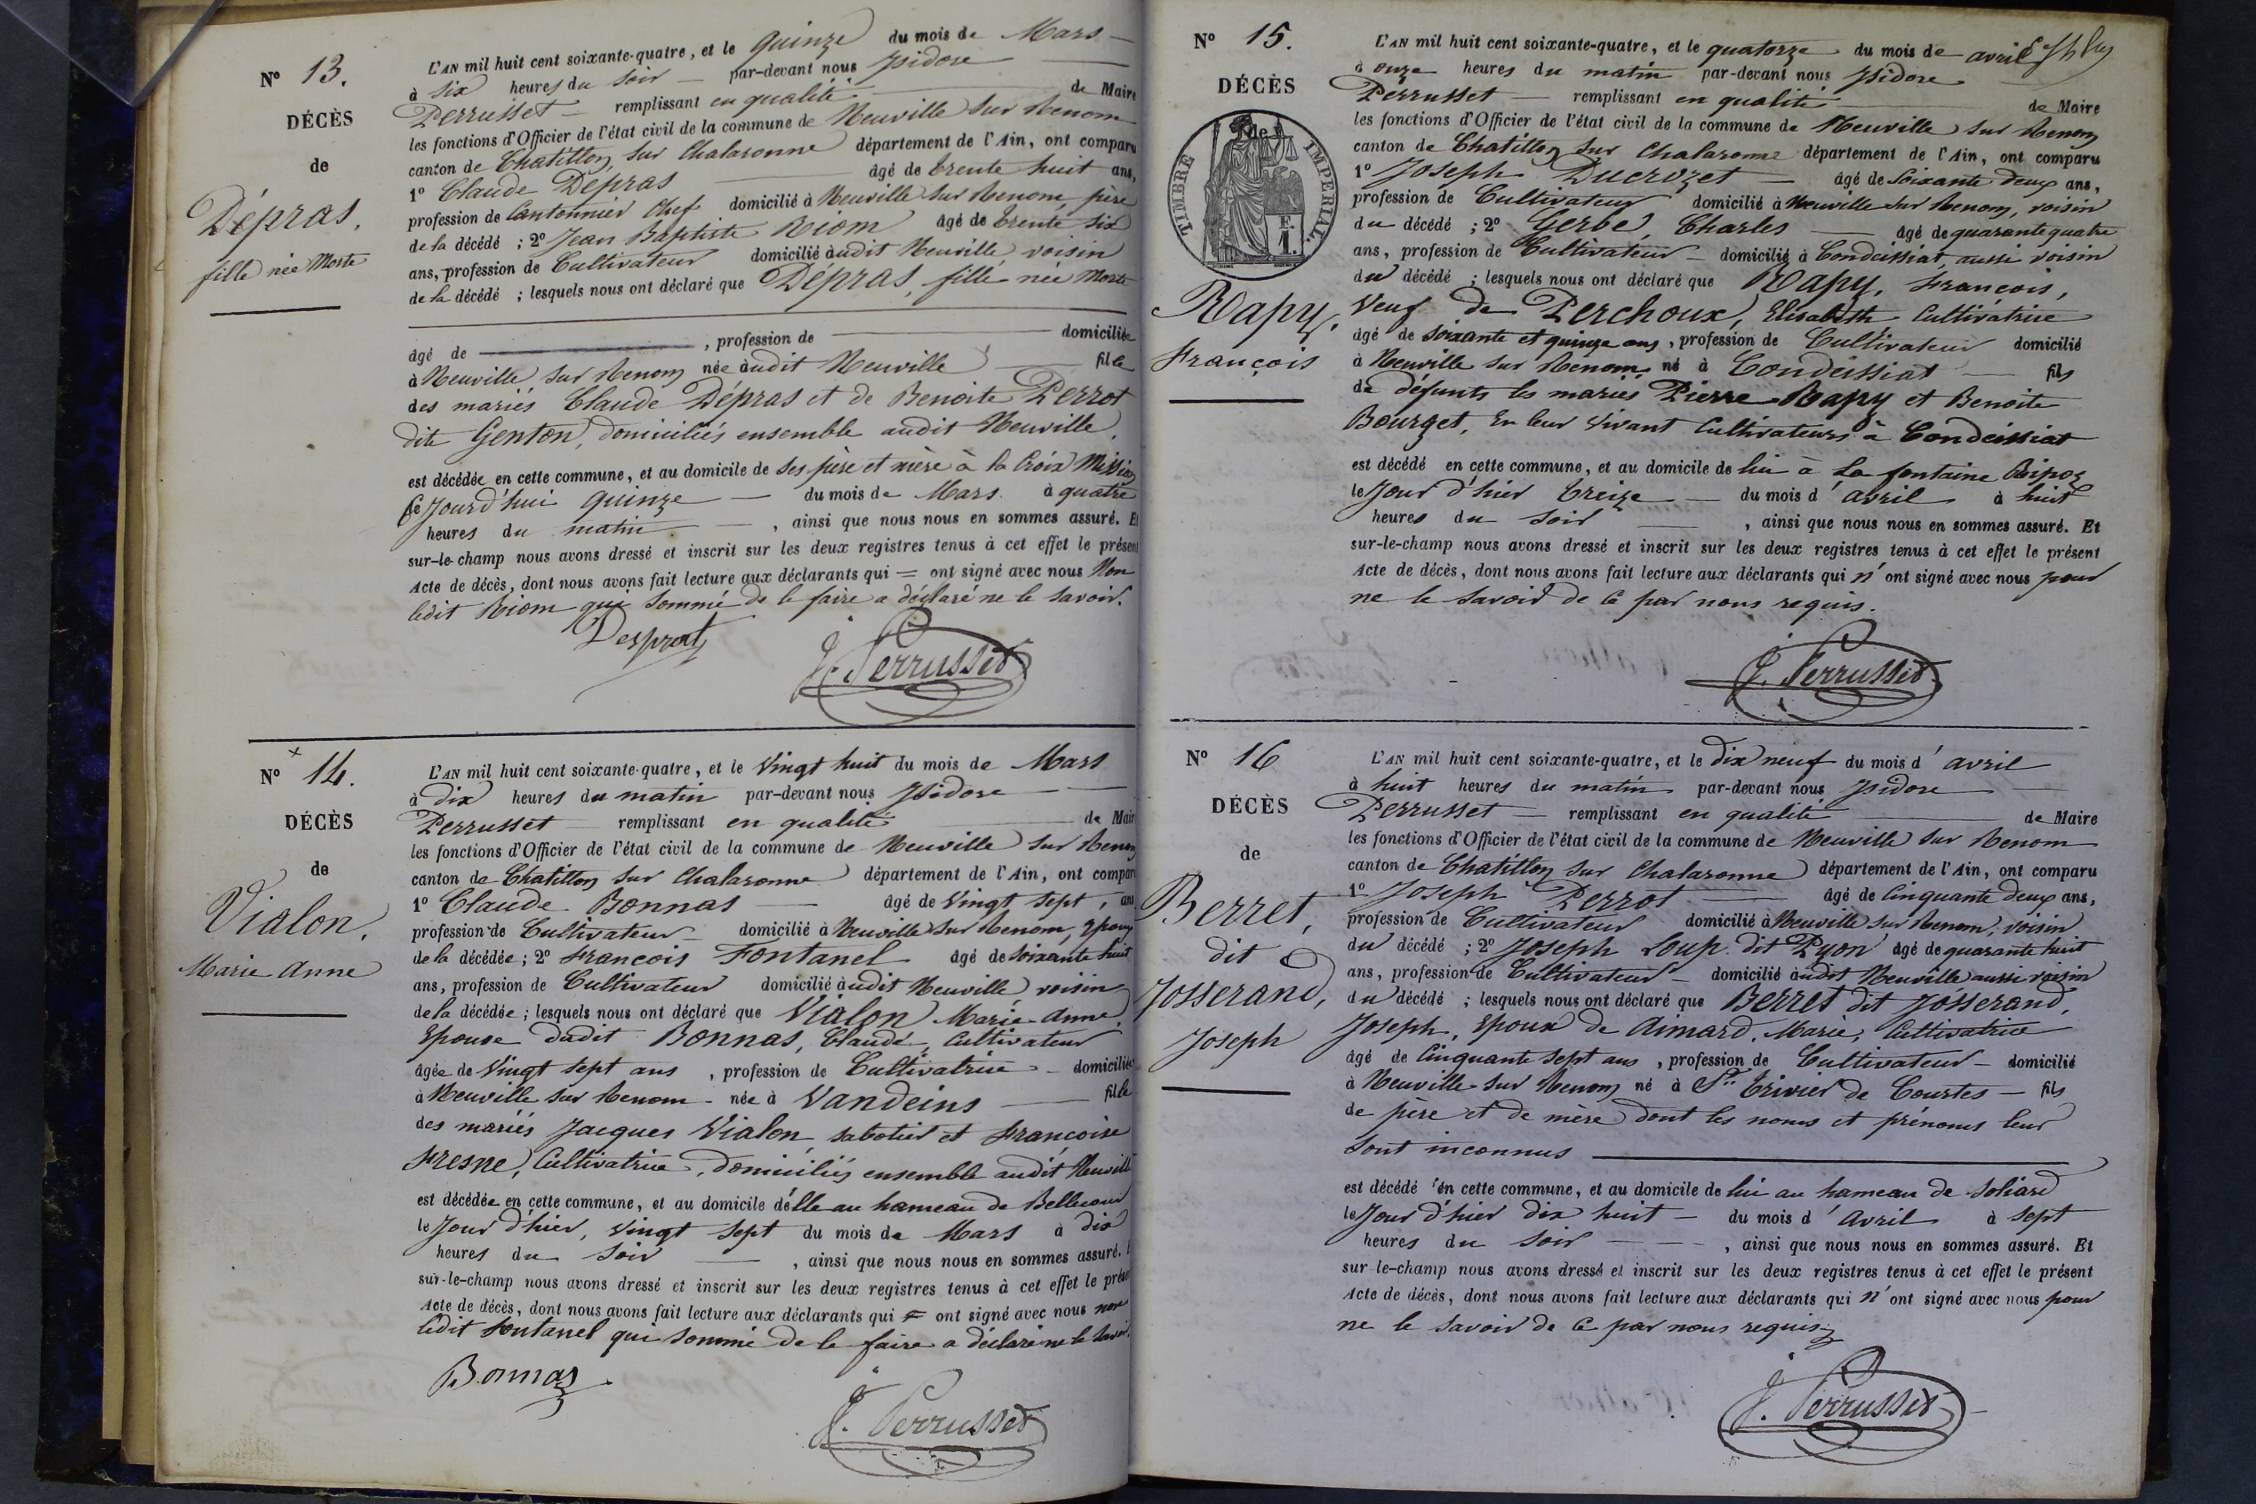 N° 13.
DÉCÈS
de
Dépras,
fille née Morte
L'AN mil huit cent soixante-quatre, et le quinze du mois de Mars
à six heures du soir par-devant nous Isidore
Perrusset remplissant en qualité de Maire
les fonctions d'Officier de l'état civil de la commune de Neuville sur Renom
canton de Chatillon sur Chalaronne département de l'Ain, ont comparu
1° Claude Dépras âgé de trente huit ans,
profession de Cantonnier Chef domicilié à Neuville sur Renom, père
de la décédé ; 2° Jean Baptiste Riom âgé de trente six
ans, profession de Cultivateur domicilié audit Neuville voisin
de la décédé ; lesquels nous ont déclaré que Dépras, fille née Morte
âgé de , profession de domiciliée
à Neuville sur Renom née audit Neuville fille
des mariés Claude Dépras et de Benoite Perrot
dite Genton, domiciliés ensemble audit Neuville,
est décédée en cette commune, et au domicile de ses père et mère à la Croix Mission
le Jourd'hui quinze du mois de Mars à quatre
heures du matin , ainsi que nous nous en sommes assuré. Et
sur-le-champ nous avons dressé et inscrit sur les deux registres tenus à cet effet le présent
Acte de décès, dont nous avons fait lecture aux déclarants qui = ont signé avec nous Non
ledit Riom qui sommé de le faire a déclaré ne le savoir.
Desprat
J. Perrusset
N° 14.
DÉCÈS
de
Vialon,
Marie Anne
L'AN mil huit cent soixante-quatre, et le Vingt huit du mois de Mars
à dix heures du matin par-devant nous Isidore
Perrusset remplissant en qualité de Maire
les fonctions d'Officier de l'état civil de la commune de Neuville sur Renom
canton de Chatillon sur Chalaronne département de l'Ain, ont comparu
1° Claude Bonnas âgé de Vingt sept, ans
profession de Cultivateur domicilié à Neuville sur Renom, Epoux
de la décédée ; 2° François Fontanel âgé de soixante huit
ans, profession de Cultivateur domicilié audit Neuville voisin
de la décédée ; lesquels nous ont déclaré que Vialon Marie Anne
Epouse dudit Bonnas, Claude, Cultivateur
âgée de Vingt sept ans , profession de Cultivatrice domiciliée
à Neuville sur Renom née à Vandeins fille
des mariés Jacques Vialon sabotier et Françoise
Fresne, Cultivatrice, domiciliés ensemble audit Neuville
est décédée en cette commune, et au domicile d'elle au hameau de Bellecour
le Jour d'hier, Vingt sept du mois de Mars à dix
heures du soir , ainsi que nous nous en sommes assuré.
sur-le-champ nous avons dressé et inscrit sur les deux registres tenus à cet effet le présent
Acte de décès, dont nous avons fait lecture aux déclarants qui = ont signé avec nous non
ledit Fontanel qui sommé de le faire a déclaré ne le savoir.
Bonnas
J. Perrusset
N° 15.
DÉCÈS
de
TIMBRE IMPERIAL
E.
1.
Rapy,
François
L'AN mil huit cent soixante-quatre, et le quatorze du mois de avril
à onze heures du matin par-devant nous Isidore
Perrusset remplissant en qualité de Maire
les fonctions d'Officier de l'état civil de la commune de Neuville sur Renom
canton de Chatillon sur Chalaronne département de l'Ain, ont comparu
1° Joseph Ducrozet âgé de soixante deux ans,
profession de Cultivateur domicilié à Neuville sur Renom, voisin
du décédé ; 2° Gerbe, Charles âgé de quarante quatre
ans, profession de Cultivateur domicilié à Condeissiat, aussi voisin
du décédé ; lesquels nous ont déclaré que Rapy, François,
Veuf de Perchoux, Elisabeth Cultivatrice
âgé de soixante et quinze ans , profession de Cultivateur domicilié
à Neuville sur Renom né à Condeissiat fils
de défunts les mariés Pierre Rapy et Benoite
Bourget, En leur Vivant Cultivateurs à Condeissiat
est décédé en cette commune, et au domicile de lui à La fontaine
le Jour d'hier treize du mois d'avril à huit
heures du soir , ainsi que nous nous en sommes assuré. Et
sur-le-champ nous avons dressé et inscrit sur les deux registres tenus à cet effet le présent
Acte de décès, dont nous avons fait lecture aux déclarants qui n'ont signé avec nous pour
ne le savoir de ce par nous requis.
J. Perrusset
N° 16
DÉCÈS
de
Berret,
dit
Josserand,
Joseph
L'AN mil huit cent soixante-quatre, et le dix neuf du mois d'avril
à huit heures du matin par-devant nous Isidore
Perrusset remplissant en qualité de Maire
les fonctions d'Officier de l'état civil de la commune de Neuville sur Renom
canton de Chatillon sur Chalaronne département de l'Ain, ont comparu
1° Joseph Perrot âgé de Cinquante deux ans,
profession de Cultivateur domicilié à Neuville sur Renom, voisin
du décédé ; 2° Joseph Loup dit Pyon âgé de quarante huit
ans, profession de Cultivateur domicilié audit Neuville aussi voisin
du décédé ; lesquels nous ont déclaré que Berret dit Josserand,
Joseph, Epoux de Aimard, Marie, Cultivatrice
âgé de Cinquante sept ans , profession de Cultivateur domicilié
à Neuville sur Renom né à St Trivier de Courtes fils
de père et de mère dont les noms et prénoms leur
sont inconnus
est décédé en cette commune, et au domicile de lui au hameau de Soliard
le Jour d'hier dix huit du mois d'Avril à sept
heures du soir , ainsi que nous nous en sommes assuré. Et
sur-le-champ nous avons dressé et inscrit sur les deux registres tenus à cet effet le présent
Acte de décès, dont nous avons fait lecture aux déclarants qui n'ont signé avec nous pour
ne le savoir de ce par nous requis
J. Perrusset